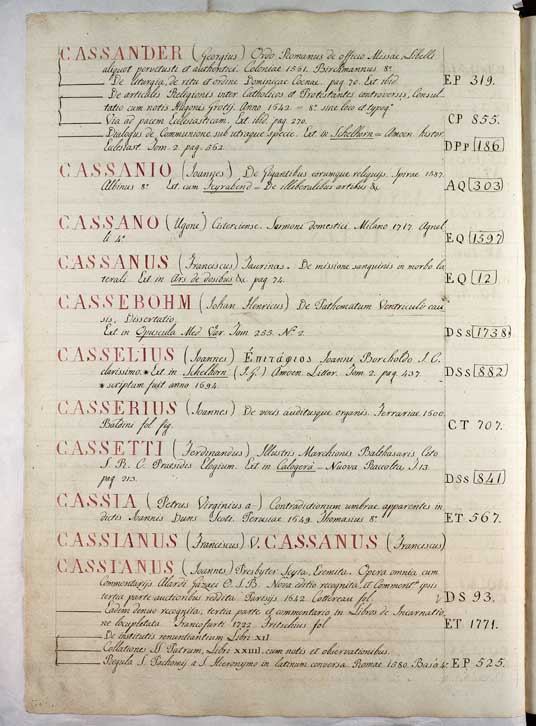 CASSANDER (Georgius) Ordo Romanus de officio Missae Libelli
aliquot pervetusti et authentici. Coloniae 1561. Birckmannus 8º
De liturgia, de ritu et ordine Dominicae Coenae. pag. 70. Est ibid. EP 319.
De articulis Religionis inter Catholicos et Protestantes controversis, Consul-
tatio cum notis Hugonis Grotij. Anno 1642 = 8º sine loco et typog.
Via ad pacem Ecclesiasticam. Est ibid. pag. 270. CP 855.
Dialogus de Communione sub utraque specie. Est in Schelhorn = Amoen. histor.
Ecclesiast. Tom. 2. pag. 562. DPp 186
CASSANIO (Joannes) De Gigantibus eorumque reliquijs. Spirae 1587.
Albinus 8º Est. cum Feyrabend = De illiberalibus artibus &. AQ 303
CASSANO (Ugone) Cisterciense. Sermoni domestici. Milano 1717. Agnel-
li 4º EQ 1597
CASSANUS (Franciscus) Taurinas. De missione sanguinis in morbo la-
terali. Est in Ars de dosibus &. pag. 74. EQ 12
CASSEBOHM (Johan Henricus) De Pathematum Ventriculo cau-
sis. Dissertatio.
Est in Opuscula Med. Var. Tom. 255. Nº 2. DSs 1738
CASSELIUS (Joannes) Ἐπιτάφιος Joanni Borcholdo J. C.
clarissimo. * Est in Schelhorn (J. G.) Amoen. Litter. Tom. 2. pag. 437. DSs 882
* scriptum fuit anno 1594.
CASSERIUS (Joannes) De vocis auditusque organis. Ferrariae 1600.
Baldini fol. fig. CT 707.
CASSETTI (Ferdinandus) Illustris Marchionis Balthasaris Cito
S. R. C. Praesidis Elogium. Est in Calogerà = Nuova Raccolta. T. 13.
pag. 213. DSs 841
CASSIA (Petrus Virginius a) Contradictionum umbrae apparentes in
dictis Joannis Duns Scoti. Perusiae 1649. Thomasius 8º ET 567.
CASSIANUS (Franciscus) V. CASSANUS (Franciscus)
CASSIANUS (Joannes) Presbyter Scyta, Eremita. Opera omnia cum
Commentarijs Alardi Gazaei O. S. B. Nova editio recognita, et Comment. ipsis
tertia parte auctioribus reddita. Parisijs. 1642. Cottereau fol. DS 93.
Eadem denuo recognita, tertia parte et commentario in Libros de Incarnatio-
ne locupletata. Francofurti 1722. Fritschius fol. ET 1771.
De institutis renuntiantium Libri XII
Collationes SS. Patrum, Libri XXIIII. cum notis et observationibus.
Regula S. Pachomij a S. Hieronymo in latinum conversa. Romae 1580. Basa 4º EP 525.